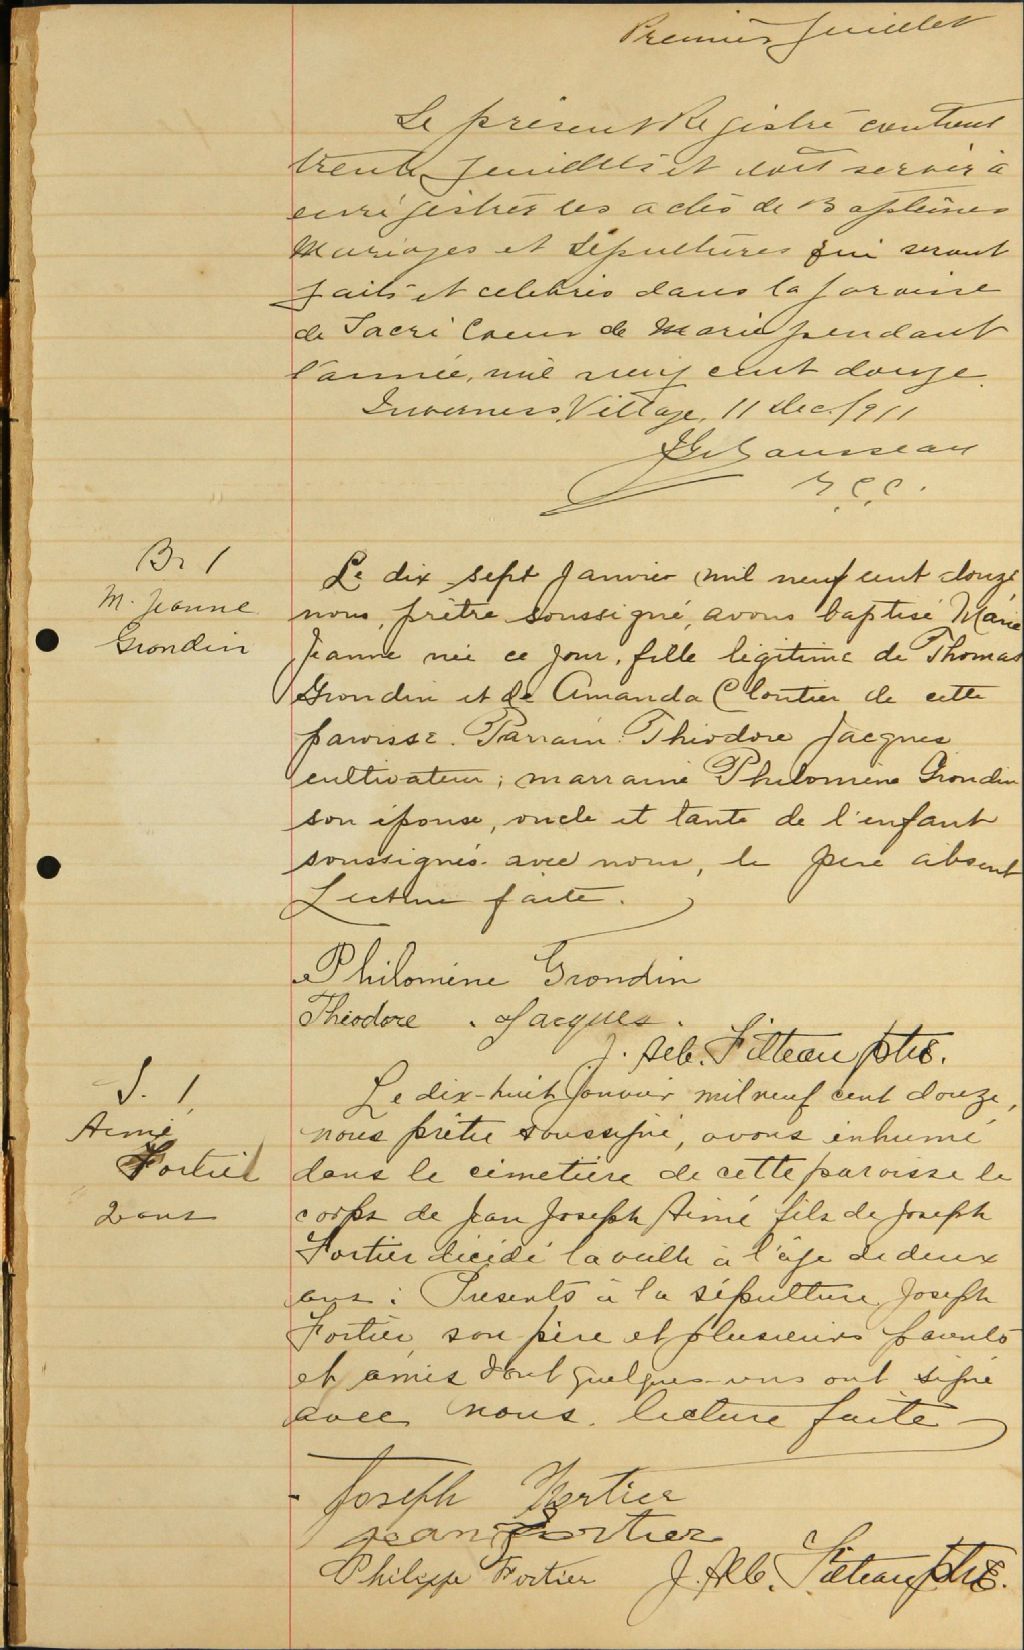 Premier feuillet
Le présent Registre contient
trente feuillets et doit servir à
enrégistrer les actes de Baptêmes
Mariages et Sépultures qui seront
faits et célébrés dans la paroisse
de Sacré Coeur de Marie pendant
l'année, mil neuf cent douze.
Inverness Village, 11 Dec. 1911
Rousseau
B. 1
M. Jeanne
Grondin
Le dix sept Janvier mil neuf cent douze
nous, prêtre soussigné, avons baptisé Marie
Jeanne née ce jour, fille légitime de Thomas
Grondin et de Amanda Cloutier de cette
paroisse. Parrain Théodore Jacques
cultivateur; marraine Philomène Grondin
son épouse, oncle et tante de l'enfant
soussignés avec nous, le père absent
Lecture faite.
Philomène Grondin
Théodore Jacques.
J. Alb. Filteau ptre.
S. 1
Aimé
Fortier
2 ans
Le dix-huit Janvier mil neuf cent douze,
nous prêtre soussigné, avons inhumé
dans le cimetière de cette paroisse le
corps de Jean Joseph Aimé fils de Joseph
Fortier décédé la veille à l'âge de deux
ans. Présents à la sépulture Joseph
Fortier, son père et plusieurs parents
et amis dont quelques-uns ont signé
avec nous. lecture faite
Joseph Fortier
Jean Fortier
Philippe Fortier
J. Alb. Filteau ptre.